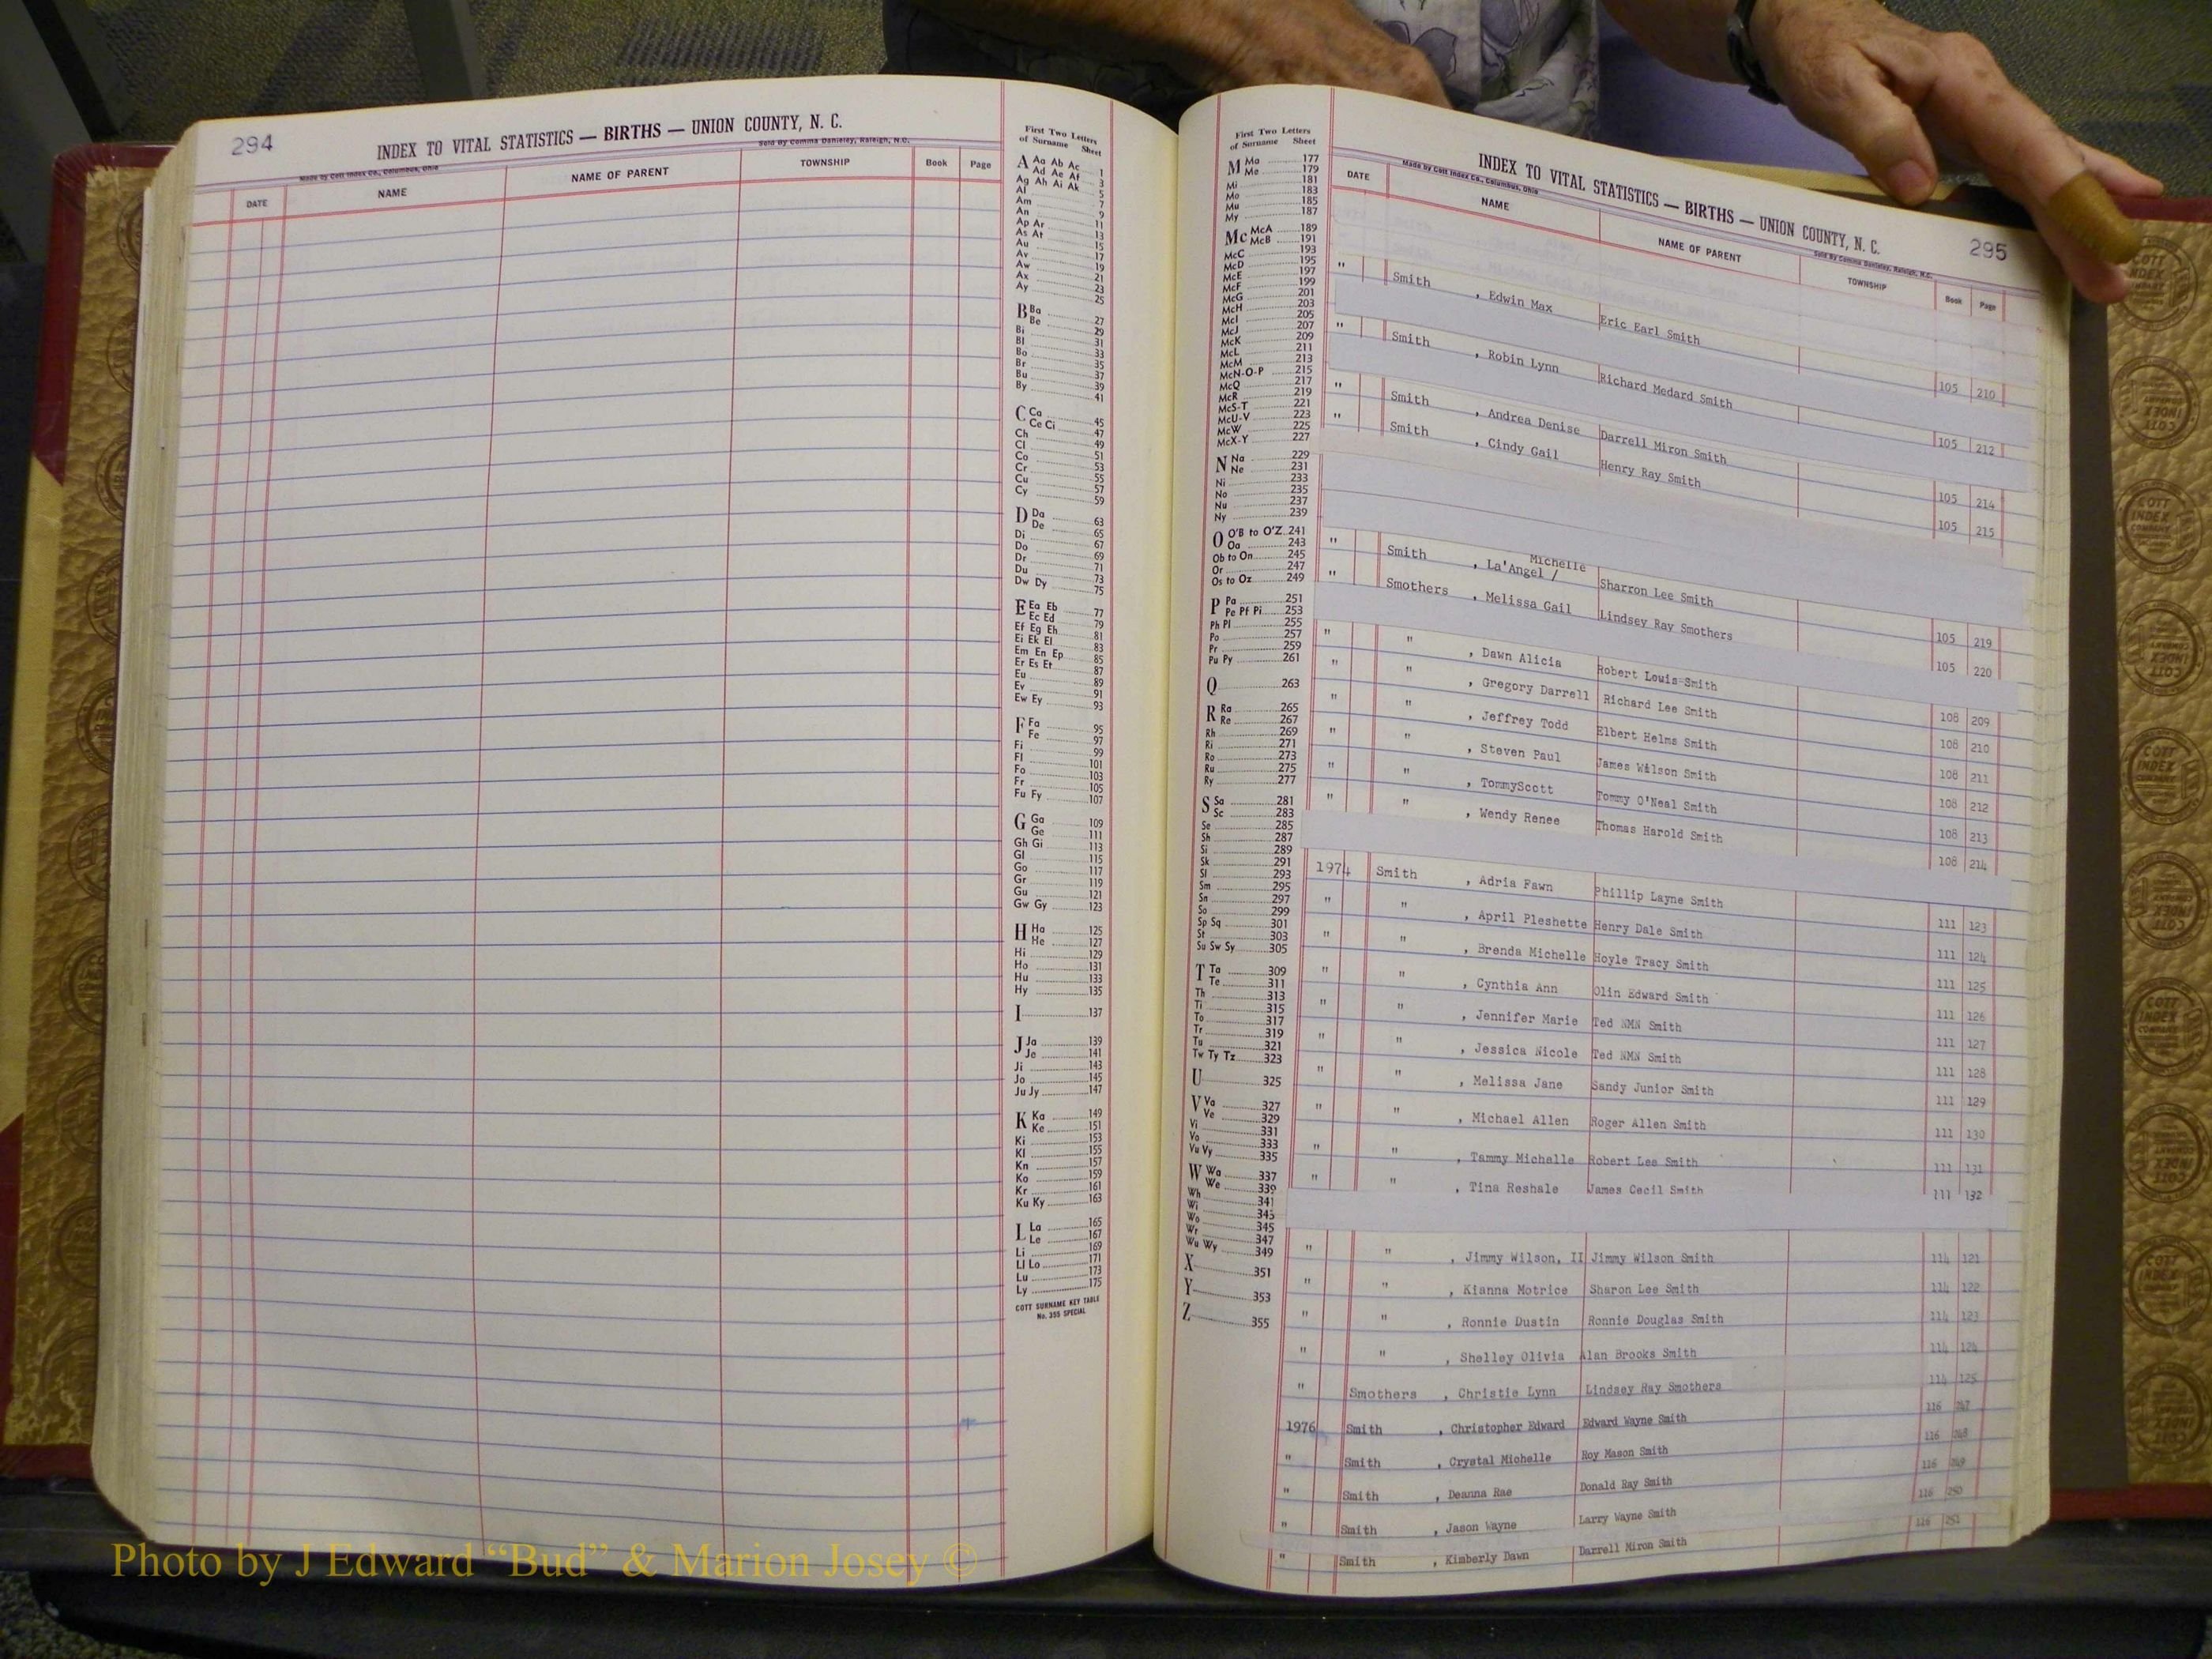 294
INDEX TO VITAL STATISTICS — BIRTHS — UNION COUNTY, N. C.
Made by Cott Index Co., Columbus, Ohio
Sold By Comma Danieley, Raleigh, N.C.
DATE NAME NAME OF PARENT TOWNSHIP Book Page
First Two Letters
of Surname Sheet
A Aa Ab Ac 1
Ad Ae Af 3
Ag Ah Ai Ak 5
Al 7
Am 9
An 11
Ap Ar 13
As At 15
Au 17
Av 19
Aw 21
Ax 23
Ay 25
B Ba 27
Be 29
Bi 31
Bl 33
Bo 35
Br 37
Bu 39
By 41
C Ca 45
Ce Ci 47
Ch 49
Cl 51
Co 53
Cr 55
Cu 57
Cy 59
D Da 63
De 65
Di 67
Do 69
Dr 71
Du 73
Dw Dy 75
E Ea Eb 77
Ec Ed 79
Ef Eg Eh 81
Ei Ek El 83
Em En Ep 85
Er Es Et 87
Eu 89
Ev 91
Ew Ey 93
F Fa 95
Fe 97
Fi 99
Fl 101
Fo 103
Fr 105
Fu Fy 107
G Ga 109
Ge 111
Gh Gi 113
Gl 115
Go 117
Gr 119
Gu 121
Gw Gy 123
H Ha 125
He 127
Hi 129
Ho 131
Hu 133
Hy 135
I 137
J Ja 139
Je 141
Ji 143
Jo 145
Ju Jy 147
K Ka 149
Ke 151
Ki 153
Kl 155
Kn 157
Ko 159
Kr 161
Ku Ky 163
L La 165
Le 167
Li 169
Ll Lo 171
Lu 173
Ly 175
COTT SURNAME KEY TABLE
No. 355 SPECIAL
First Two Letters
of Surname Sheet
M Ma 177
Me 179
Mi 181
Mo 183
Mu 185
My 187
Mc McA 189
McB 191
McC 193
McD 195
McE 197
McF 199
McG 201
McH 203
McI 205
McJ 207
McK 209
McL 211
McM 213
McN-O-P 215
McQ 217
McR 219
McS-T 221
McU-V 223
McW 225
McX-Y 227
N Na 229
Ne 231
Ni 233
No 235
Nu 237
Ny 239
O O'B to O'Z 241
Oa 243
Ob to On 245
Or 247
Os to Oz 249
P Pa 251
Pe Pf Pi 253
Ph Pl 255
Po 257
Pr 259
Pu Py 261
Q 263
R Ra 265
Re 267
Rh 269
Ri 271
Ro 273
Ru 275
Ry 277
S Sa 281
Sc 283
Se 285
Sh 287
Si 289
Sk 291
Sl 293
Sm 295
Sn 297
So 299
Sp Sq 301
St 303
Su Sw Sy 305
T Ta 309
Te 311
Th 313
Ti 315
To 317
Tr 319
Tu 321
Tw Ty Tz 323
U 325
V Va 327
Ve 329
Vi 331
Vo 333
Vu Vy 335
W Wa 337
We 339
Wh 341
Wi 343
Wo 345
Wr 347
Wu Wy 349
X 351
Y 353
Z 355
INDEX TO VITAL STATISTICS — BIRTHS — UNION COUNTY, N. C.
295
Made by Cott Index Co., Columbus, Ohio
Sold By Comma Danieley, Raleigh, N.C.
DATE NAME NAME OF PARENT TOWNSHIP Book Page
" Smith , Edwin Max Eric Earl Smith 105 210
" Smith , Robin Lynn Richard Medard Smith 105 212
" Smith , Andrea Denise Darrell Miron Smith 105 214
" Smith , Cindy Gail Henry Ray Smith 105 215
" Smith , La'Angel / Michelle Sharron Lee Smith 105 219
" Smothers , Melissa Gail Lindsey Ray Smothers 105 220
" " , Dawn Alicia Robert Louis Smith 108 209
" " , Gregory Darrell Richard Lee Smith 108 210
" " , Jeffrey Todd Elbert Helms Smith 108 211
" " , Steven Paul James Wilson Smith 108 212
" " , TommyScott Tommy O'Neal Smith 108 213
" " , Wendy Renee Thomas Harold Smith 108 214
1974 Smith , Adria Fawn Phillip Layne Smith 111 123
" " , April Pleshette Henry Dale Smith 111 124
" " , Brenda Michelle Hoyle Tracy Smith 111 125
" " , Cynthia Ann Olin Edward Smith 111 126
" " , Jennifer Marie Ted NMN Smith 111 127
" " , Jessica Nicole Ted NMN Smith 111 128
" " , Melissa Jane Sandy Junior Smith 111 129
" " , Michael Allen Roger Allen Smith 111 130
" " , Tammy Michelle Robert Lee Smith 111 131
" " , Tina Reshale James Cecil Smith 111 132
" " , Jimmy Wilson, II Jimmy Wilson Smith 114 121
" " , Kianna Motrice Sharon Lee Smith 114 122
" " , Ronnie Dustin Ronnie Douglas Smith 114 123
" " , Shelley Olivia Alan Brooks Smith 114 124
" Smothers , Christie Lynn Lindsey Ray Smothers 114 125
1976 Smith , Christopher Edward Edward Wayne Smith 116 247
" Smith , Crystal Michelle Roy Mason Smith 116 248
" Smith , Deanna Rae Donald Ray Smith 116 249
" Smith , Jason Wayne Larry Wayne Smith 116 250
" Smith , Kimberly Dawn Darrell Miron Smith 116 251
Photo by J Edward “Bud” & Marion Josey ©